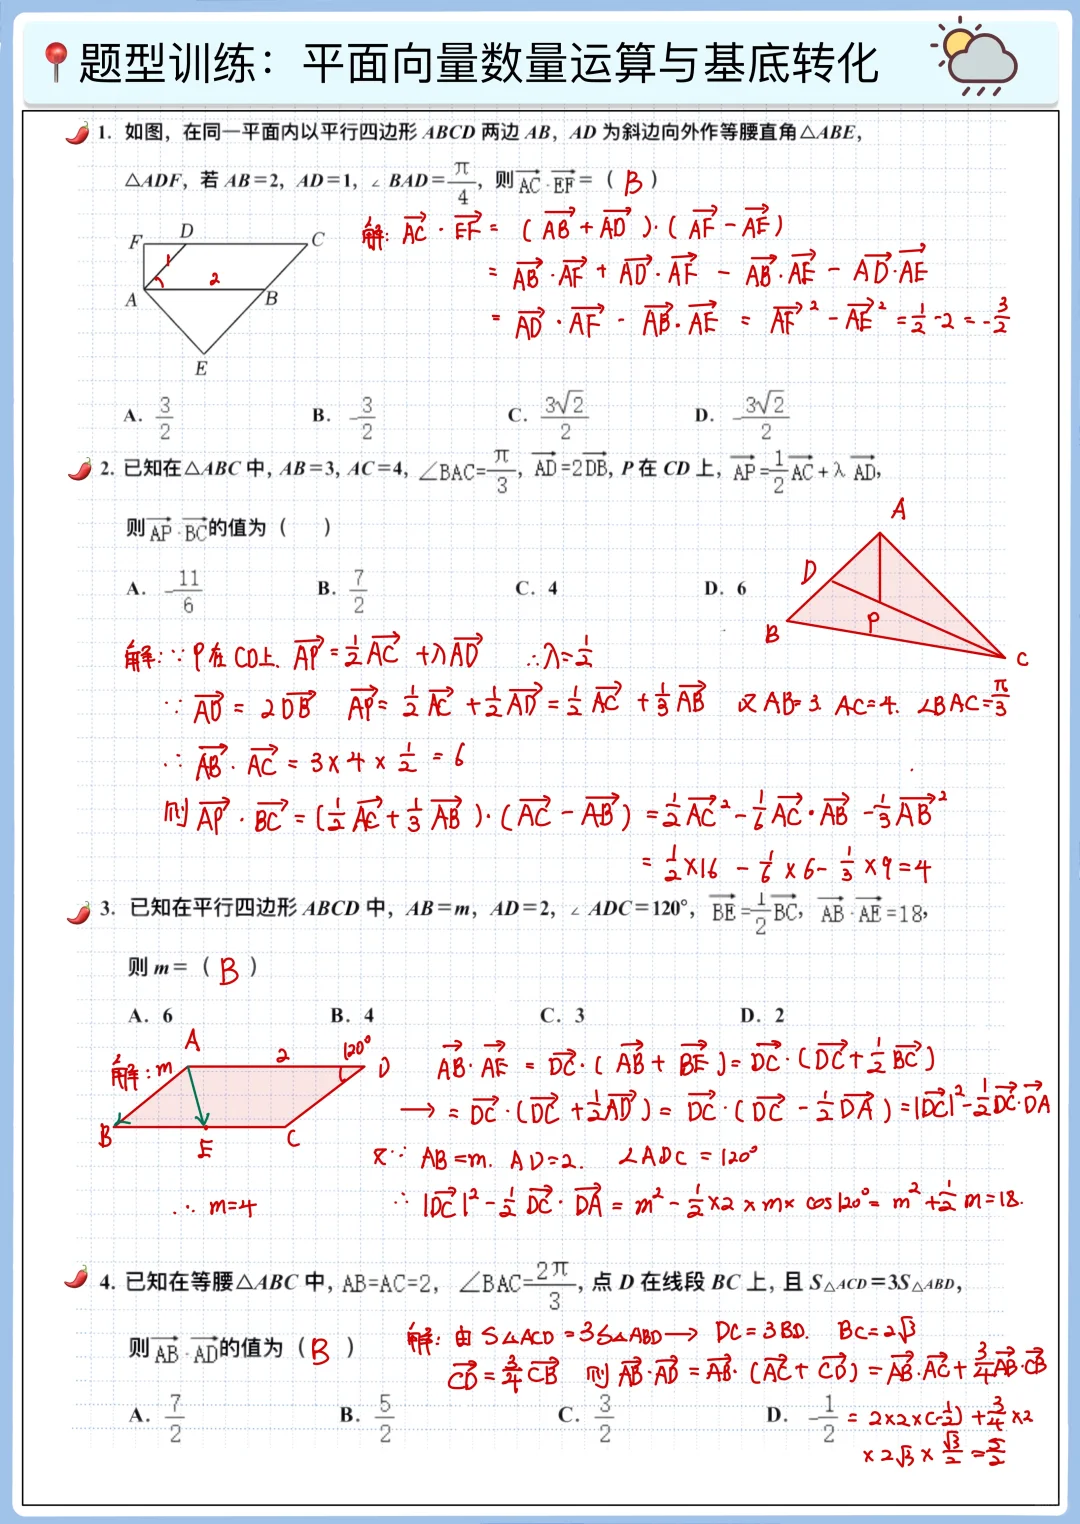 题型训练：平面向量数量运算与基底转化
1. 如图，在同一平面内以平行四边形 ABCD 两边 AB，AD 为斜边向外作等腰直角△ABE，
△ADF，若 AB=2，AD=1，∠BAD=π/4，则 \overrightarrow{AC}·\overrightarrow{EF}=（ B ）
F D C
1
2
A B
E
解: \overrightarrow{AC}·\overrightarrow{EF} = (\overrightarrow{AB}+\overrightarrow{AD})·(\overrightarrow{AF}-\overrightarrow{AE})
= \overrightarrow{AB}·\overrightarrow{AF}+\overrightarrow{AD}·\overrightarrow{AF}-\overrightarrow{AB}·\overrightarrow{AE}-\overrightarrow{AD}·\overrightarrow{AE}
= \overrightarrow{AD}·\overrightarrow{AF}-\overrightarrow{AB}·\overrightarrow{AE} = \overrightarrow{AF}²-\overrightarrow{AE}² = 1/2-2 = -3/2
A. 3/2 B. -3/2 C. 3√2/2 D. -3√2/2
2. 已知在△ABC 中，AB=3，AC=4，∠BAC=π/3，\overrightarrow{AD}=2\overrightarrow{DB}，P 在 CD 上，\overrightarrow{AP}=1/2\overrightarrow{AC}+λ\overrightarrow{AD}，
则\overrightarrow{AP}·\overrightarrow{BC}的值为（ ）
A. -11/6 B. 7/2 C. 4 D. 6
A
D
B P
C
解:∵P在CD上. \overrightarrow{AP}=1/2\overrightarrow{AC}+λ\overrightarrow{AD} ∴λ=1/2
∵ \overrightarrow{AD}=2\overrightarrow{DB} \overrightarrow{AP}=1/2\overrightarrow{AC}+1/2\overrightarrow{AD}=1/2\overrightarrow{AC}+1/3\overrightarrow{AB} 又AB=3. AC=4. ∠BAC=π/3
∴ \overrightarrow{AB}·\overrightarrow{AC}=3×4×1/2=6
则\overrightarrow{AP}·\overrightarrow{BC}=(1/2\overrightarrow{AC}+1/3\overrightarrow{AB})·(\overrightarrow{AC}-\overrightarrow{AB})=1/2\overrightarrow{AC}²-1/6\overrightarrow{AC}·\overrightarrow{AB}-1/3\overrightarrow{AB}²
=1/2×16-1/6×6-1/3×9=4
3. 已知在平行四边形 ABCD 中，AB=m，AD=2，∠ADC=120°，\overrightarrow{BE}=1/2\overrightarrow{BC}，\overrightarrow{AB}·\overrightarrow{AE}=18，
则 m=（ B ）
A. 6 B. 4 C. 3 D. 2
A 2 120° D
解: m
B E C
\overrightarrow{AB}·\overrightarrow{AE} = \overrightarrow{DC}·(\overrightarrow{AB}+\overrightarrow{BE})=\overrightarrow{DC}·(\overrightarrow{DC}+1/2\overrightarrow{BC})
→ =\overrightarrow{DC}·(\overrightarrow{DC}+1/2\overrightarrow{AD})=\overrightarrow{DC}·(\overrightarrow{DC}-1/2\overrightarrow{DA})=|\overrightarrow{DC}|²-1/2\overrightarrow{DC}·\overrightarrow{DA}
又∵ AB=m. AD=2. ∠ADC=120°
∴ |\overrightarrow{DC}|²-1/2\overrightarrow{DC}·\overrightarrow{DA}=m²-1/2×2×m×cos120°=m²+1/2m=18.
∴ m=4
4. 已知在等腰△ABC 中，AB=AC=2，∠BAC=2π/3，点 D 在线段 BC 上，且 S△ACD=3S△ABD，
则\overrightarrow{AB}·\overrightarrow{AD}的值为（ B ）
解: 由 S△ACD=3S△ABD→ DC=3BD. BC=2√3
\overrightarrow{CD}=3/4\overrightarrow{CB} 则\overrightarrow{AB}·\overrightarrow{AD}=\overrightarrow{AB}·(\overrightarrow{AC}+\overrightarrow{CD})=\overrightarrow{AB}·\overrightarrow{AC}+3/4\overrightarrow{AB}·\overrightarrow{CB}
A. 7/2 B. 5/2 C. 3/2 D. -1/2
=2×2×(-1/2)+3/4×2
×2√3×√3/2=5/2